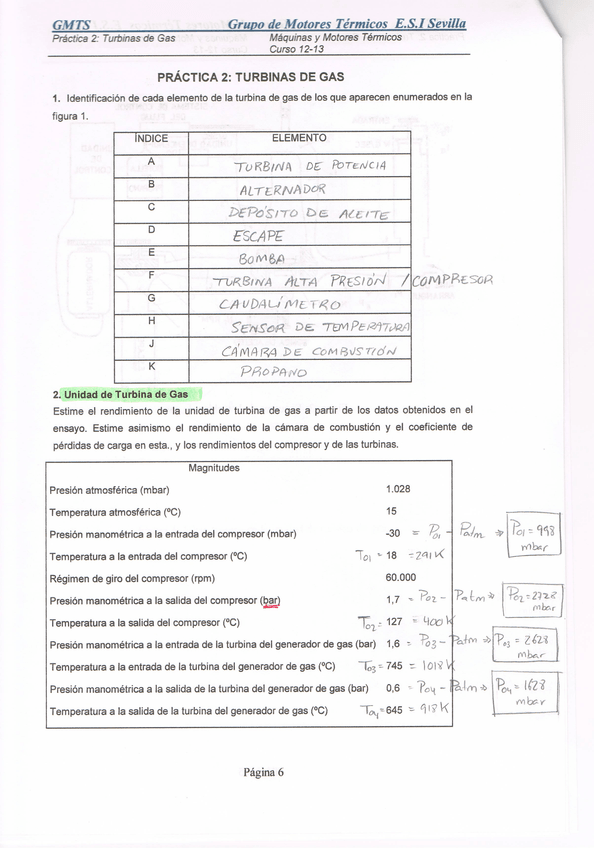 GMTS Grupo de Motores Térmicos E.S.I Sevilla
Práctica 2: Turbinas de Gas Máquinas y Motores Térmicos
Curso 12-13
PRÁCTICA 2: TURBINAS DE GAS
1. Identificación de cada elemento de la turbina de gas de los que aparecen enumerados en la
figura 1.
ÍNDICE ELEMENTO
A TURBINA DE POTENCIA
B ALTERNADOR
C DEPÓSITO DE ACEITE
D ESCAPE
E BOMBA
F TURBINA ALTA PRESIÓN / COMPRESOR
G CAUDALÍMETRO
H SENSOR DE TEMPERATURA
J CÁMARA DE COMBUSTIÓN
K PROPANO
2. Unidad de Turbina de Gas
Estime el rendimiento de la unidad de turbina de gas a partir de los datos obtenidos en el
ensayo. Estime asimismo el rendimiento de la cámara de combustión y el coeficiente de
pérdidas de carga en esta., y los rendimientos del compresor y de las turbinas.
Magnitudes
Presión atmosférica (mbar) 1.028
Temperatura atmosférica (ºC) 15
Presión manométrica a la entrada del compresor (mbar) -30 = P01 - Patm ⇒ P01 = 998 mbar
Temperatura a la entrada del compresor (ºC) T01 = 18 = 291 K
Régimen de giro del compresor (rpm) 60.000
Presión manométrica a la salida del compresor (bar) 1,7 = P02 - Patm ⇒ P02 = 2728 mbar
Temperatura a la salida del compresor (ºC) T02 = 127 = 400 K
Presión manométrica a la entrada de la turbina del generador de gas (bar) 1,6 = P03 - Patm ⇒ P03 = 2628 mbar
Temperatura a la entrada de la turbina del generador de gas (ºC) T03 = 745 = 1018 K
Presión manométrica a la salida de la turbina del generador de gas (bar) 0,6 = P04 - Patm ⇒ P04 = 1628 mbar
Temperatura a la salida de la turbina del generador de gas (ºC) T04 = 645 = 918 K
Página 6